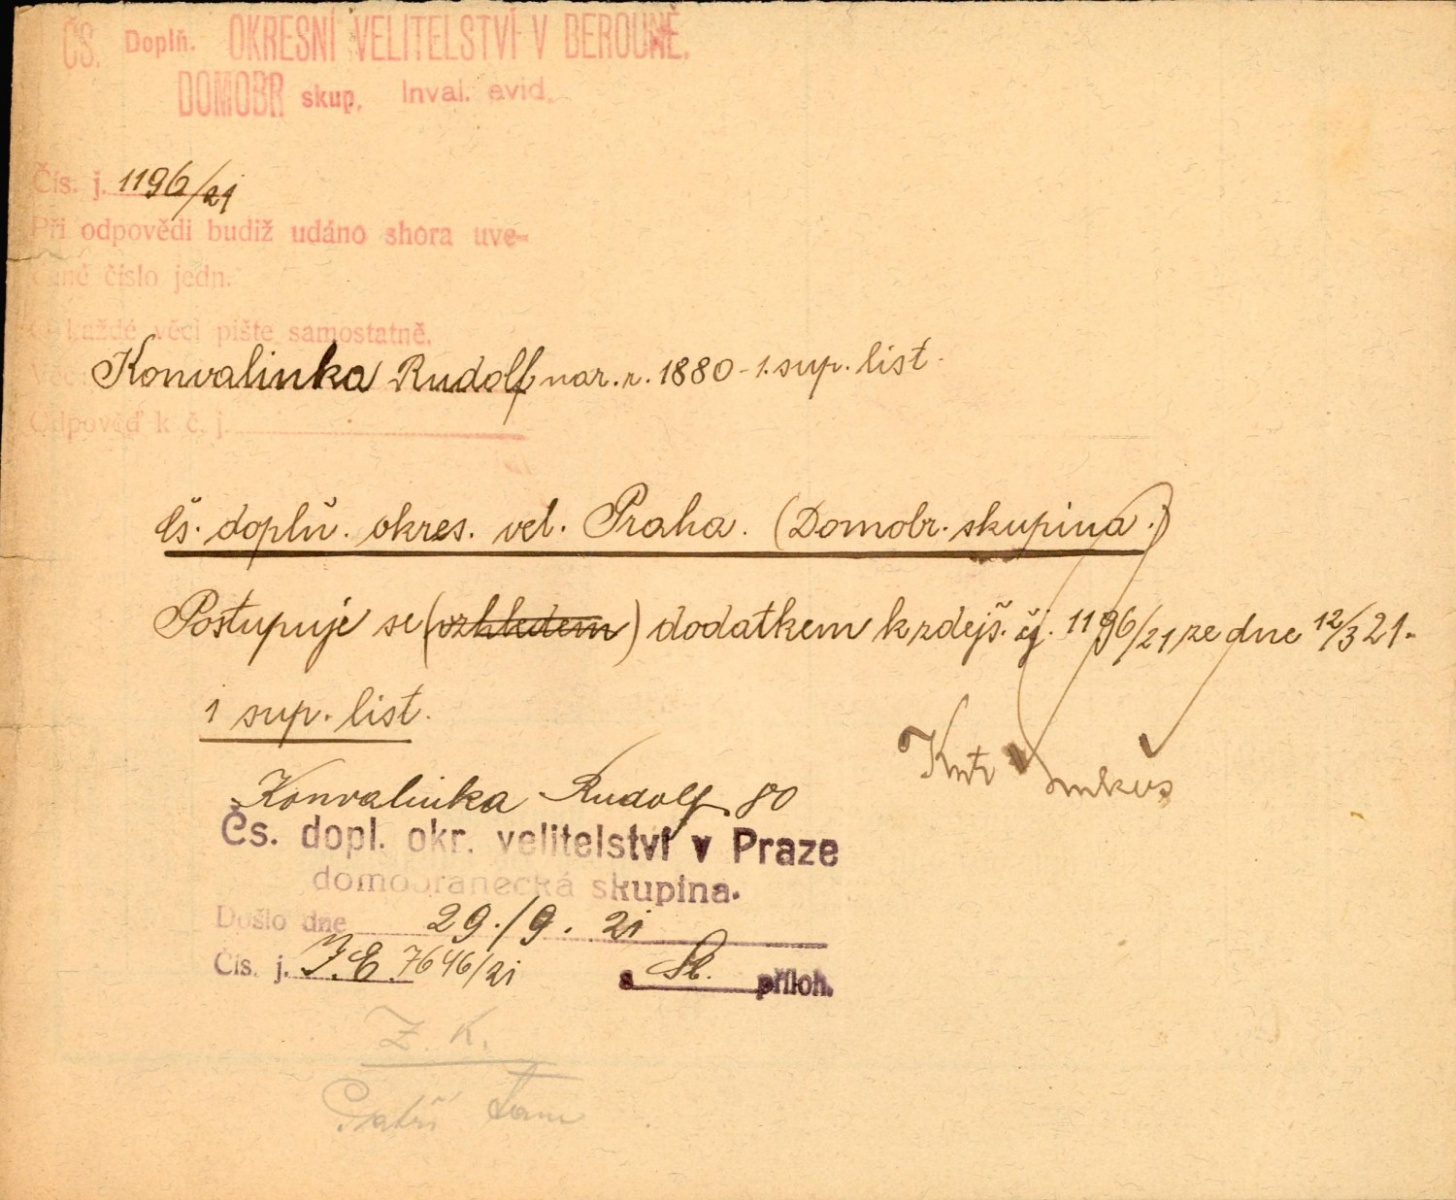 ČS. Doplň. OKRESNÍ VELITELSTVÍ V BEROUNĚ.
DOMOBR skup. Inval. evid.
Čís. j. 1196/21
Při odpovědi budiž udáno shora uve-
dené číslo jedn.
O každé věci pište samostatně.
Věc:
Konvalinka Rudolf nar. r. 1880 - 1. sup. list.
Odpověď k č. j.
Čs. doplň. okres. vel. Praha. (Domobr. skupina.)
Postupuje se (vzhledem) dodatkem k zdejš. čj. 1196/21 ze dne 12/3 21.
1 sup. list.
Konvalinka Rudolf 80
Čs. dopl. okr. velitelství v Praze
domobranecká skupina.
Došlo dne 29./9. 21
Čís. j. I.E. 7646/21 s příloh.
Z. K.
Patří tam